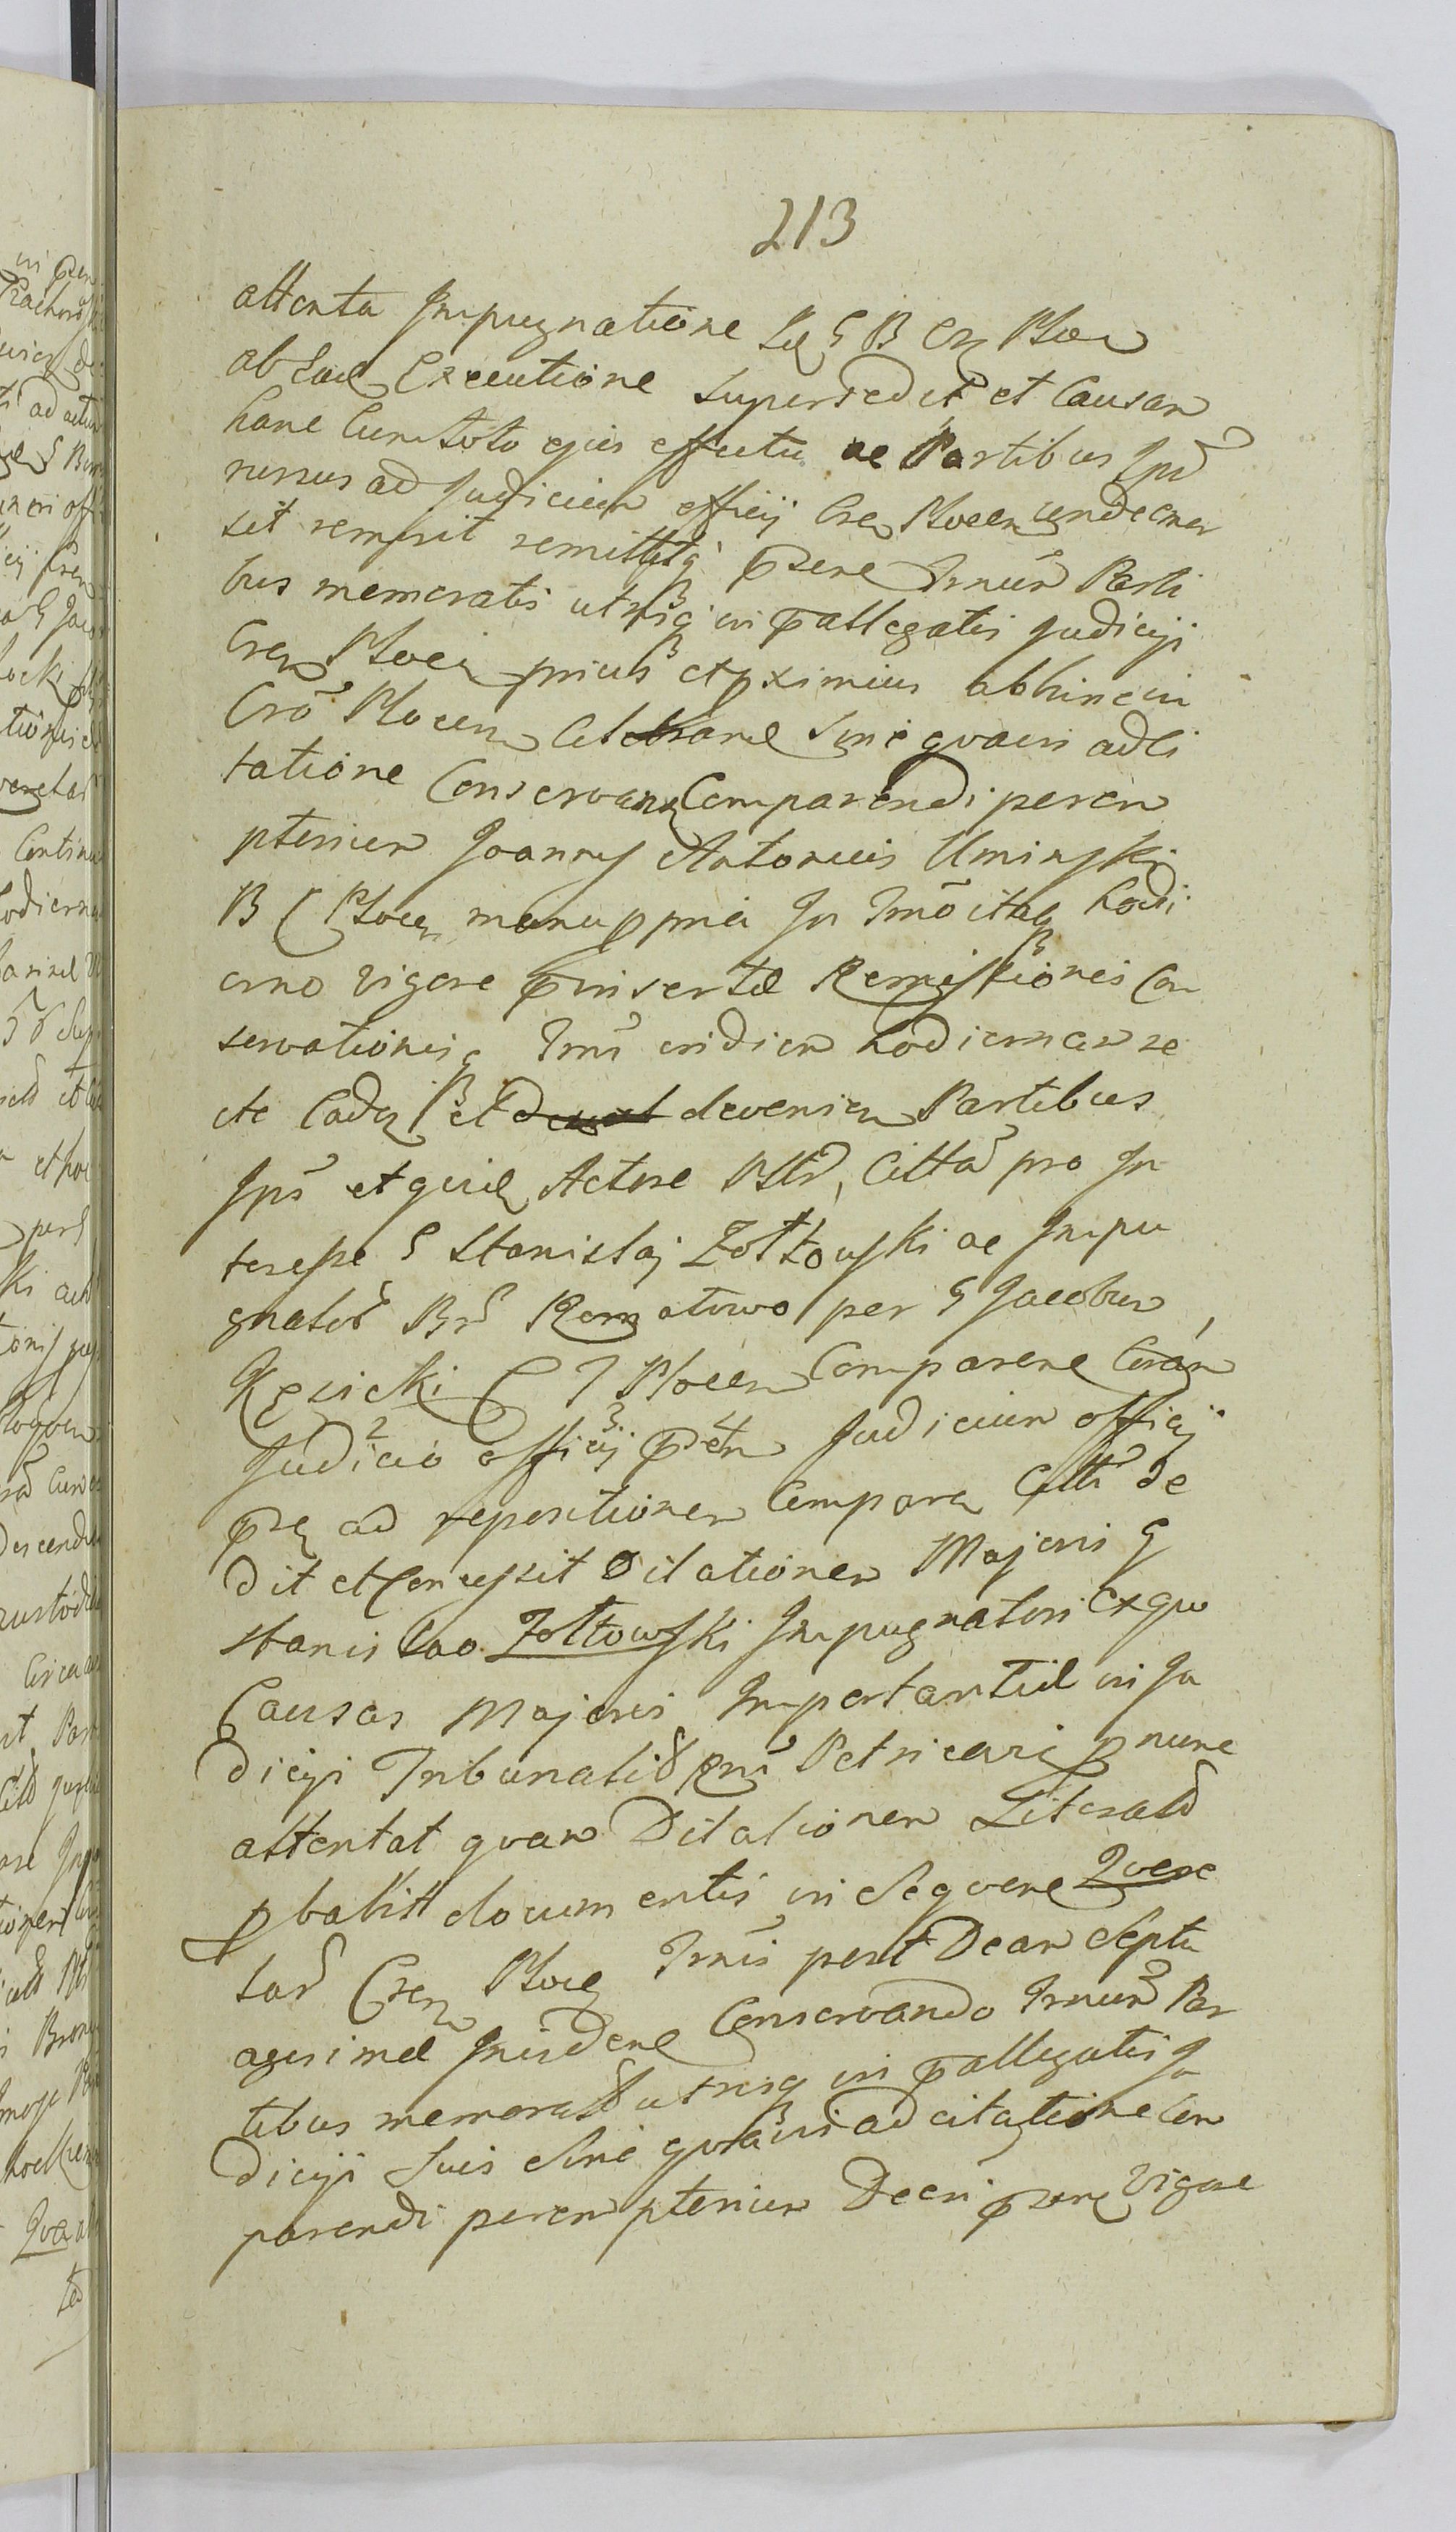 213
attenta Impugnatione Sę G B Crę Ploc
ab hac Executione supersedit et Causam
hanc Cum toto ejus effectu ac Partibus Ips
rursus ad Judicium officij Cren Plocen unde emer
sit remisit remittitq́ pzene Trnum Parti
bus memoratis utrisq́ in pallegatis Judicijs
Cren Plocen prius et pximius abhinc in
Cro Plocen Celebrane sine quavis adci
tatione Conservan Comparendi perem
ptorium Joannes Antonius Uminski
B C Plocen manu ppria In Trno itaq hodi
erno vigore pinsertæ Remissionis Con
servationisq Trni in diem hodiernam re
cte Caden et devenien Partibus
Ips et quid Actore Citta pro In
teresse G Stanislaj Zołtowski ac Impu
gnator Remotivo per G Jacobum
Kęsicki C T Plocen Comparene Coram
Judicio officij pten Judicium officij
pze ad repositionem Compara Citti de
dit et Concessit Dilationem Majoris G
Stanislao Zołtowski Impugnatori Ex quo
Causas Majoris Importantiæ in Ju
dicijs Tribunalis Rni Petricovi p nunc
attentat quam Dilationem Literato
pbabit documentis in Sequene Quere
lar Cren Ploce Trnis post Deam Septu
agesimæ Incidene Conservando Trnum Par
tibus memorat utrisq in pallegatis Ju
dicijs suis sine quavis adcitatione Com
parendi peremptorium Decri pzene vigore